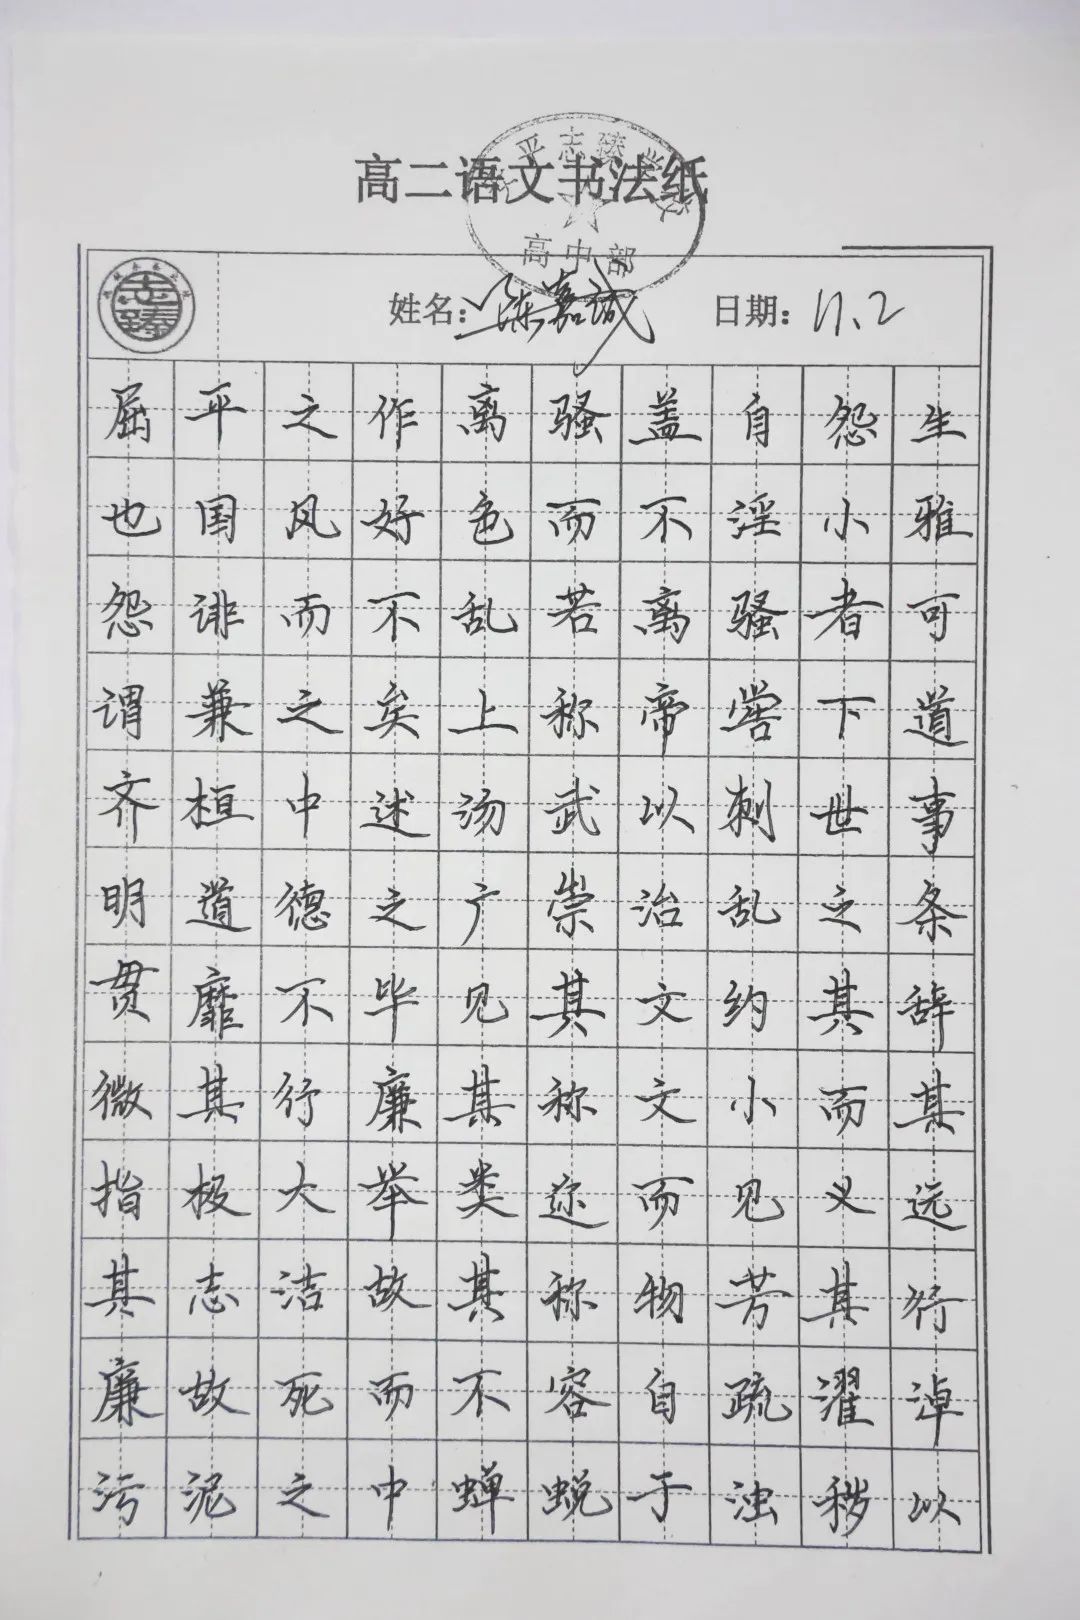 高二语文书法纸
平志臻学校
高中部
志臻
姓名：陈嘉诚 日期：11.2
屈平之作离骚盖自怨生
也国风好色而不淫小雅
怨诽而不乱若离骚者可
谓兼之矣上称帝喾下道
齐桓中述汤武以刺世事
明道德之广崇治乱之条
贯靡不毕见其文约其辞
微其行廉其称文小而其
指极大举类迩而见义远
其志洁故其称物芳其行
廉故死而不容自疏濯淖
污泥之中蝉蜕于浊秽以